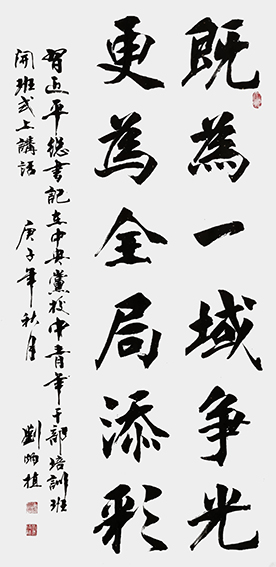 既為一域争光
更為全局添彩
習近平總書記在中央黨校中青年干部培訓班
開班式上講話
庚子年秋月
劉炳植